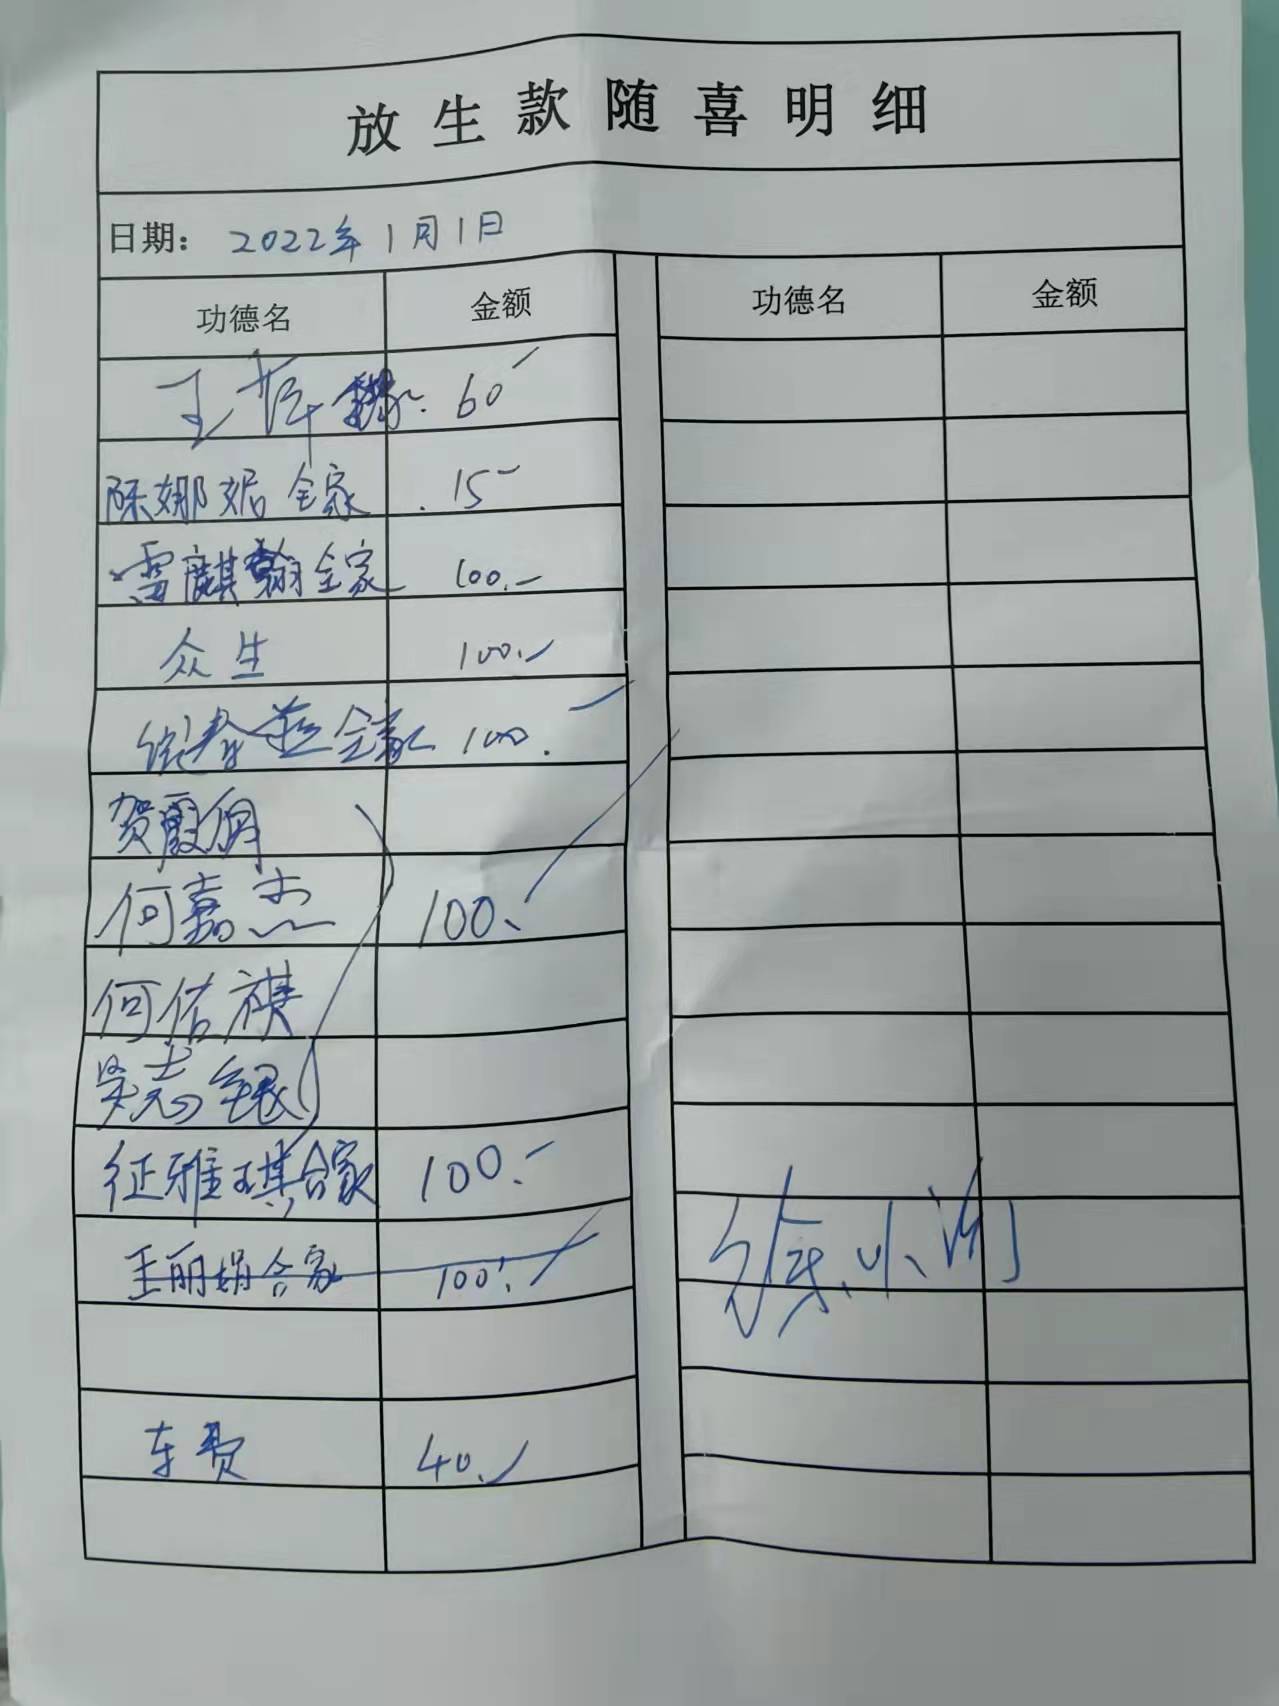 放生款随喜明细
日期： 2022年1月1日
功德名 金额 功德名 金额
王 60
陈娜妮全家 15
雷麒翰全家 100.
众生 100.
全家 100.
贺霞俏
何嘉杰 100.
何佑祺
吴志银
征雅琪合家 100.
王丽娟合家 100.
徐小
车费 40.